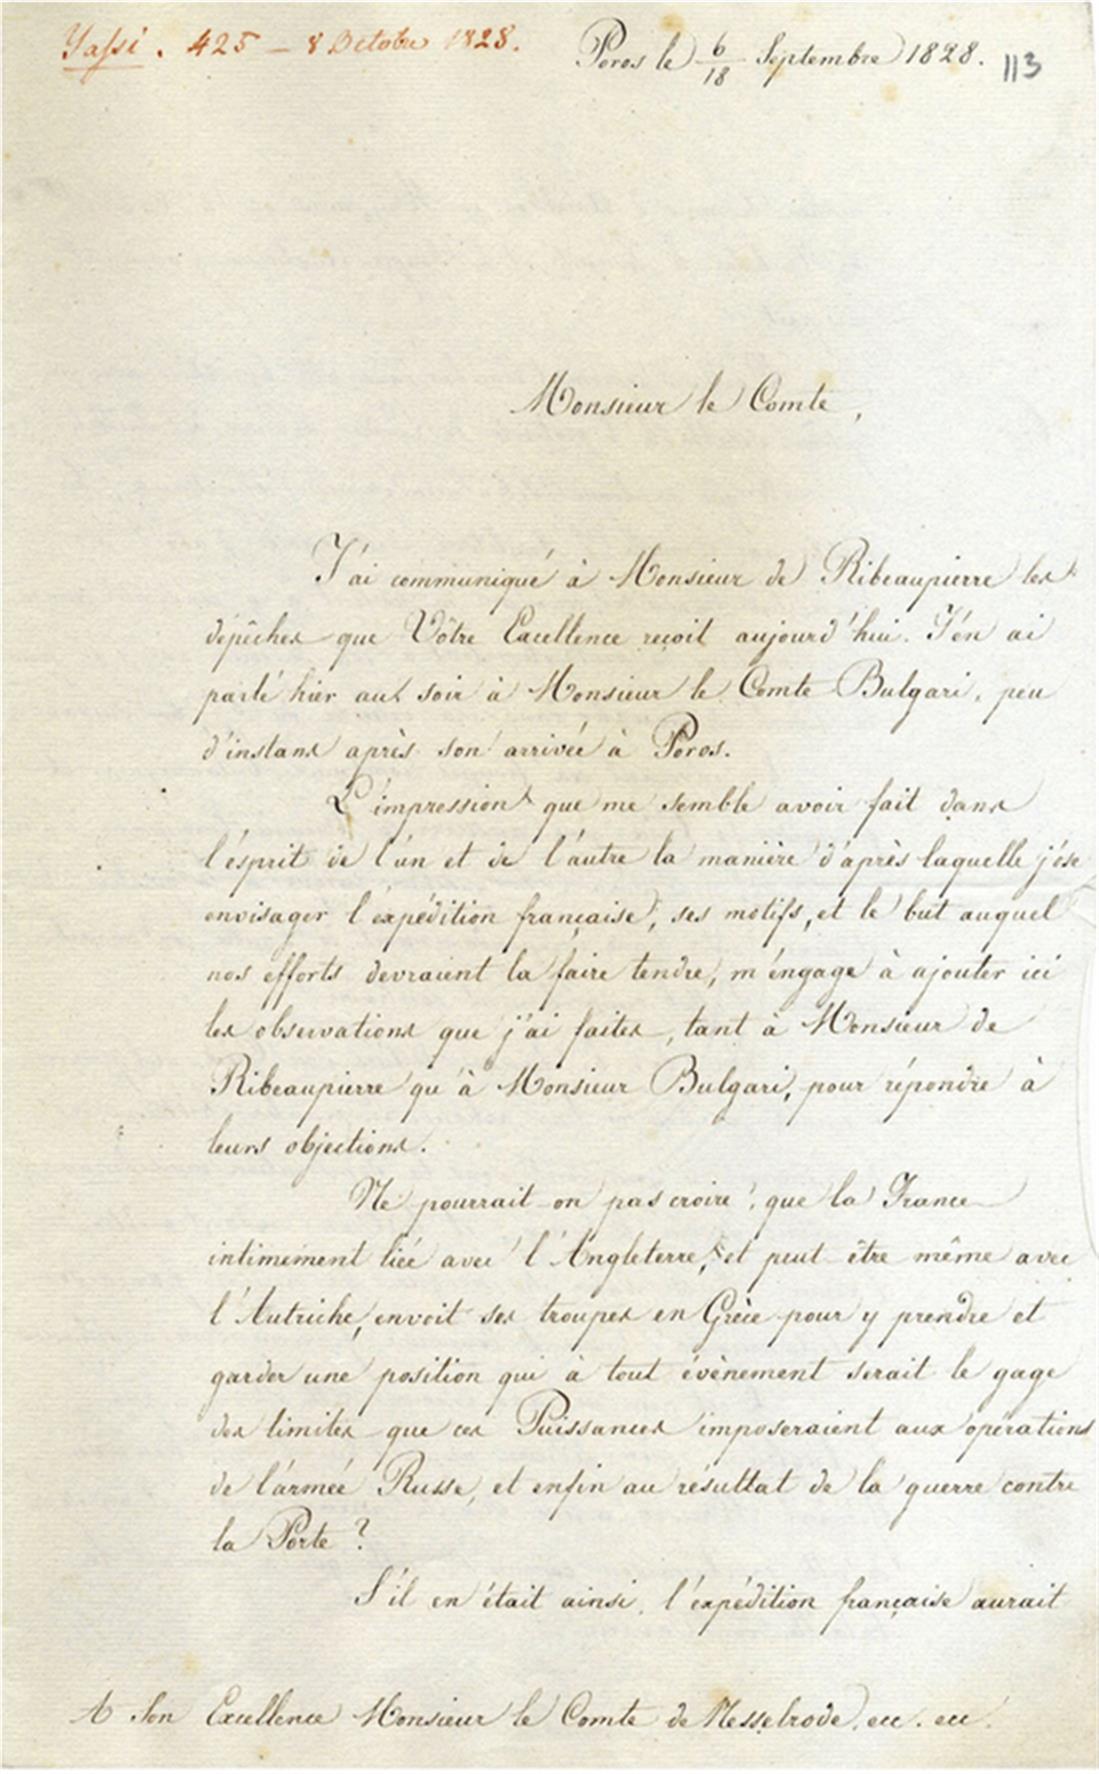 Yassi. 425 – 8 Octobre 1828.
Poros le 6/18 Septembre 1828.
113
Monsieur le Comte,
J'ai communiqué à Monsieur de Ribeaupierre les
dépêches que Vôtre Excellence reçoit aujourd'hui. J'en ai
parlé hier au soir à Monsieur le Comte Bulgari, peu
d'instans après son arrivée à Poros.
L'impression que me semble avoir fait dans
l'ésprit de l'un et de l'autre la manière d'après laquelle j'ose
envisager l'expédition française, ses motifs, et le but auquel
nos efforts devraient la faire tendre, m'engage à ajouter ici
les observations que j'ai faites, tant à Monsieur de
Ribeaupierre qu'à Monsieur Bulgari, pour répondre à
leurs objections.
Ne pourrait-on pas croire, que la France
intimement liée avec l'Angleterre, et peut-être même avec
l'Autriche, envoit ses troupes en Grèce pour y prendre et
garder une position qui à tout évènement serait le gage
des limites que ces Puissances imposeraient aux opérations
de l'armée Russe, et enfin au résultat de la guerre contre
la Porte ?
S'il en était ainsi, l'expédition française aurait
A Son Excellence Monsieur le Comte de Nesselrode, ecc. ecc.